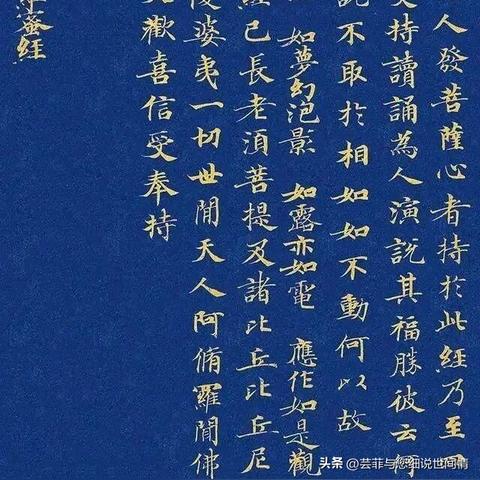 人發菩薩心者持於此經乃至
持讀誦為人演說其福勝彼云何
說不取於相如如不動何以故
如夢幻泡影 如露亦如電 應作如是觀
經已長老須菩提及諸比丘比丘尼
婆夷一切世間天人阿脩羅聞佛
歡喜信受奉持
蜜經
头条 @芸菲与您细说世间情